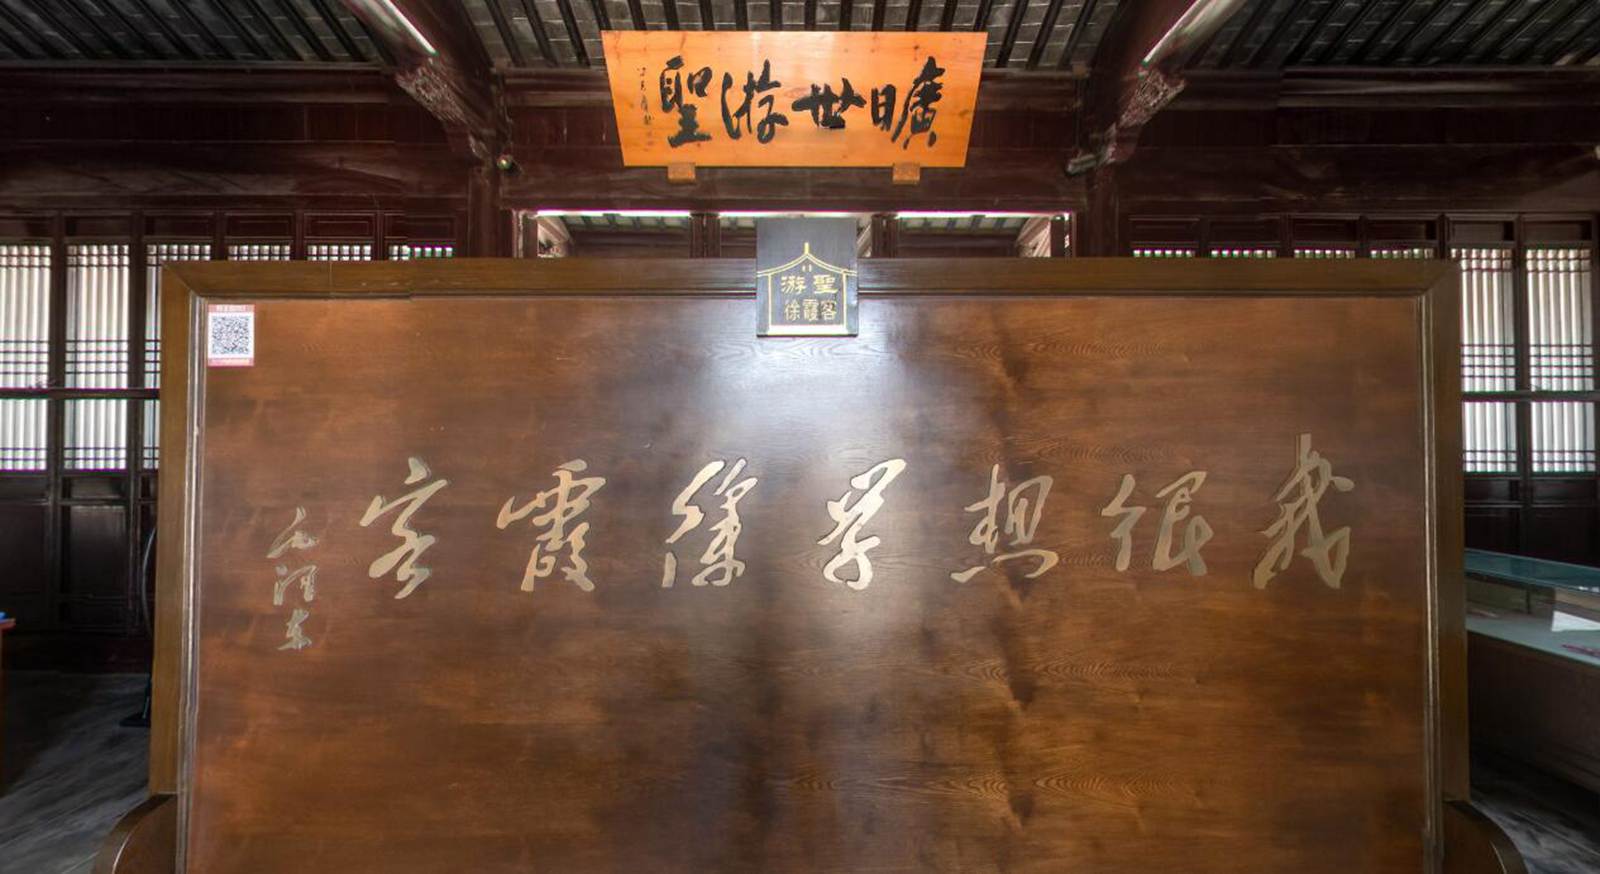 曠世游聖
聖游
客霞徐
我很想学徐霞客
毛泽东